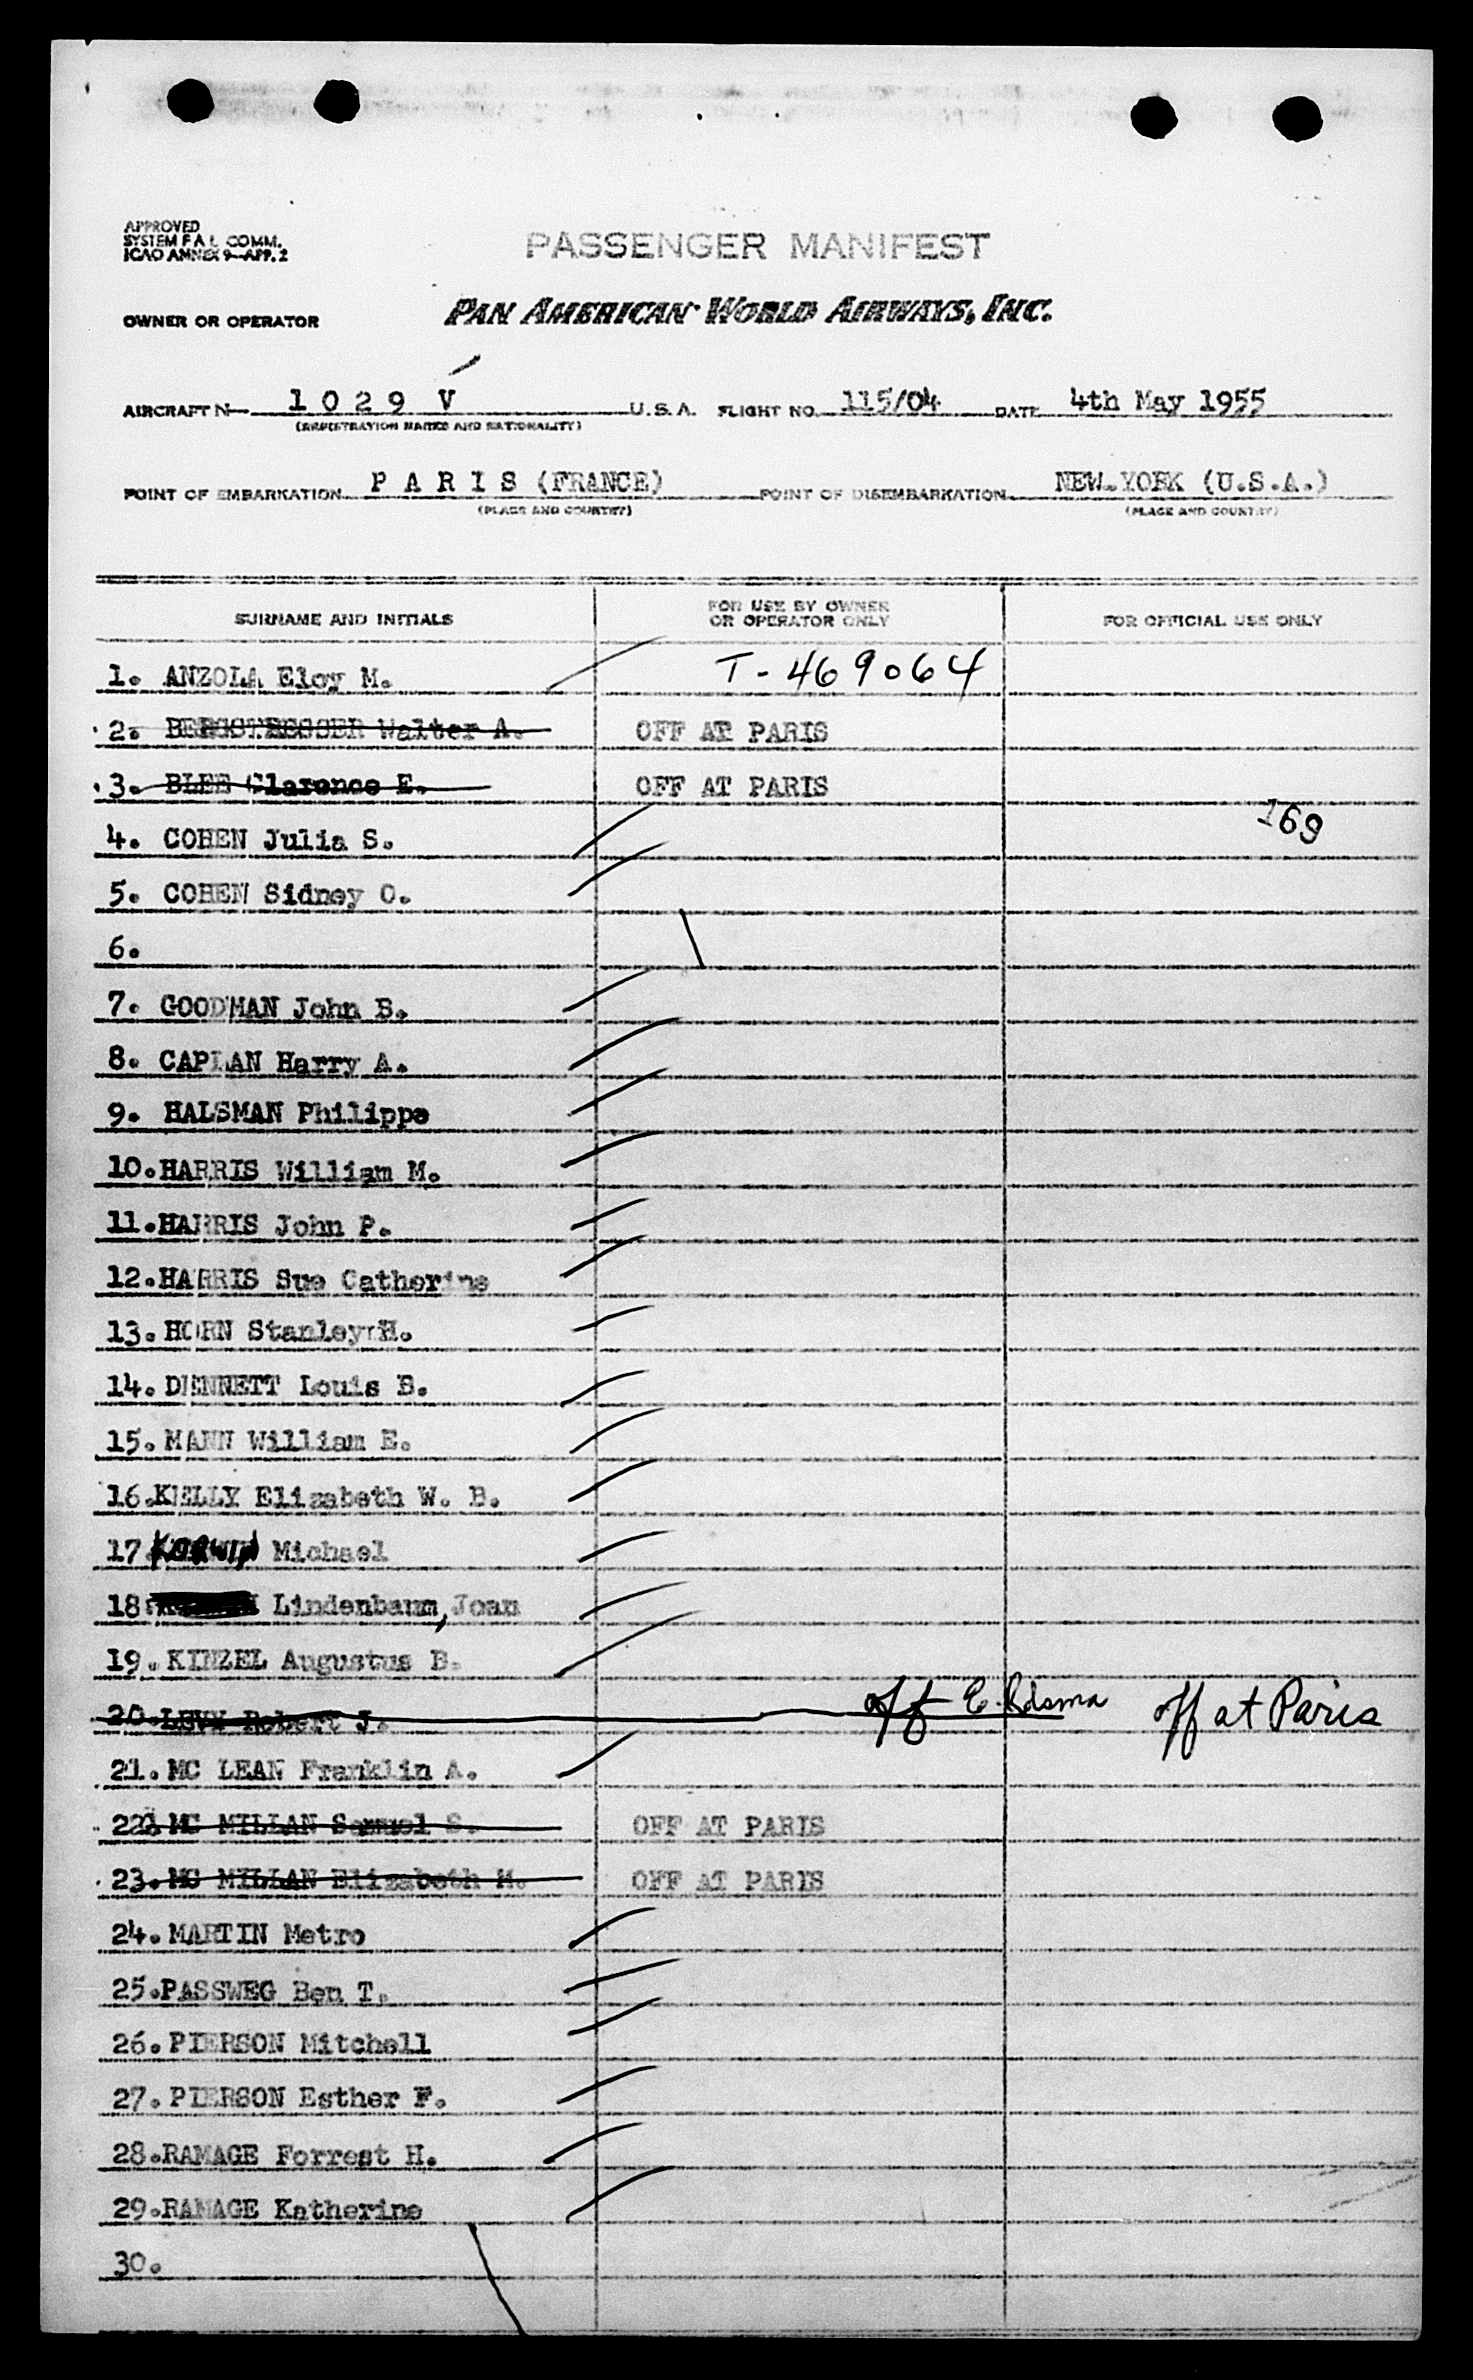 APPROVED
SYSTEM F A L COMM.
ICAO ANNEX 9-APP. 2
PASSENGER MANIFEST
OWNER OR OPERATOR PAN AMERICAN WORLD AIRWAYS, INC.
AIRCRAFT N- 1 0 2 9 V U.S.A. FLIGHT NO. 115/04 DATE 4th May 1955
(REGISTRATION MARKS AND NATIONALITY)
POINT OF EMBARKATION P A R I S (FRANCE) POINT OF DISEMBARKATION NEW.YORK (U.S.A.)
(PLACE AND COUNTRY) (PLACE AND COUNTRY)
SURNAME AND INITIALS FOR USE BY OWNER OR OPERATOR ONLY FOR OFFICIAL USE ONLY
1. ANZOLA Eloy M. T-469064
2. BERGSTRESSER Walter A. OFF AT PARIS
3. BLEE Clarence E. OFF AT PARIS
169
4. COHEN Julia S.
5. COHEN Sidney O.
6.
7. GOODMAN John B.
8. CAPLAN Harry A.
9. HALSMAN Philippe
10. HARRIS William M.
11. HARRIS John P.
12. HARRIS Sue Catherine
13. HORN Stanley H.
14. DENNETT Louis B.
15. MANN William E.
16. KELLY Elizabeth W. B.
17. KORWIN Michael
18. Lindenbaum, Joan
19. KINZEL Augustus B.
20. LEVY Robert J. off off at Paris
21. MC LEAN Franklin A.
22. MC MILLAN Samuel S. OFF AT PARIS
23. MC MILLAN Elizabeth M. OFF AT PARIS
24. MARTIN Metro
25. PASSWEG Ben T.
26. PIERSON Mitchell
27. PIERSON Esther F.
28. RAMAGE Forrest H.
29. RAMAGE Katherine
30.